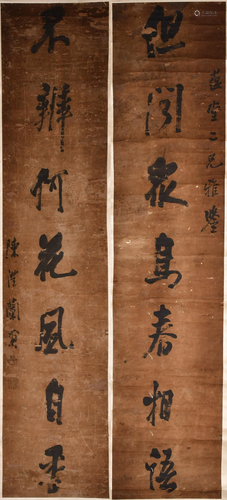 二兄雅鑒
但聞衆鳥春相語
不辨何花風自香
陳澧蘭甫